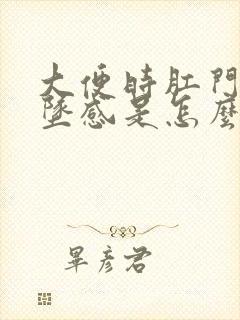 大便時肛門
墜感是怎麼
畢彥君